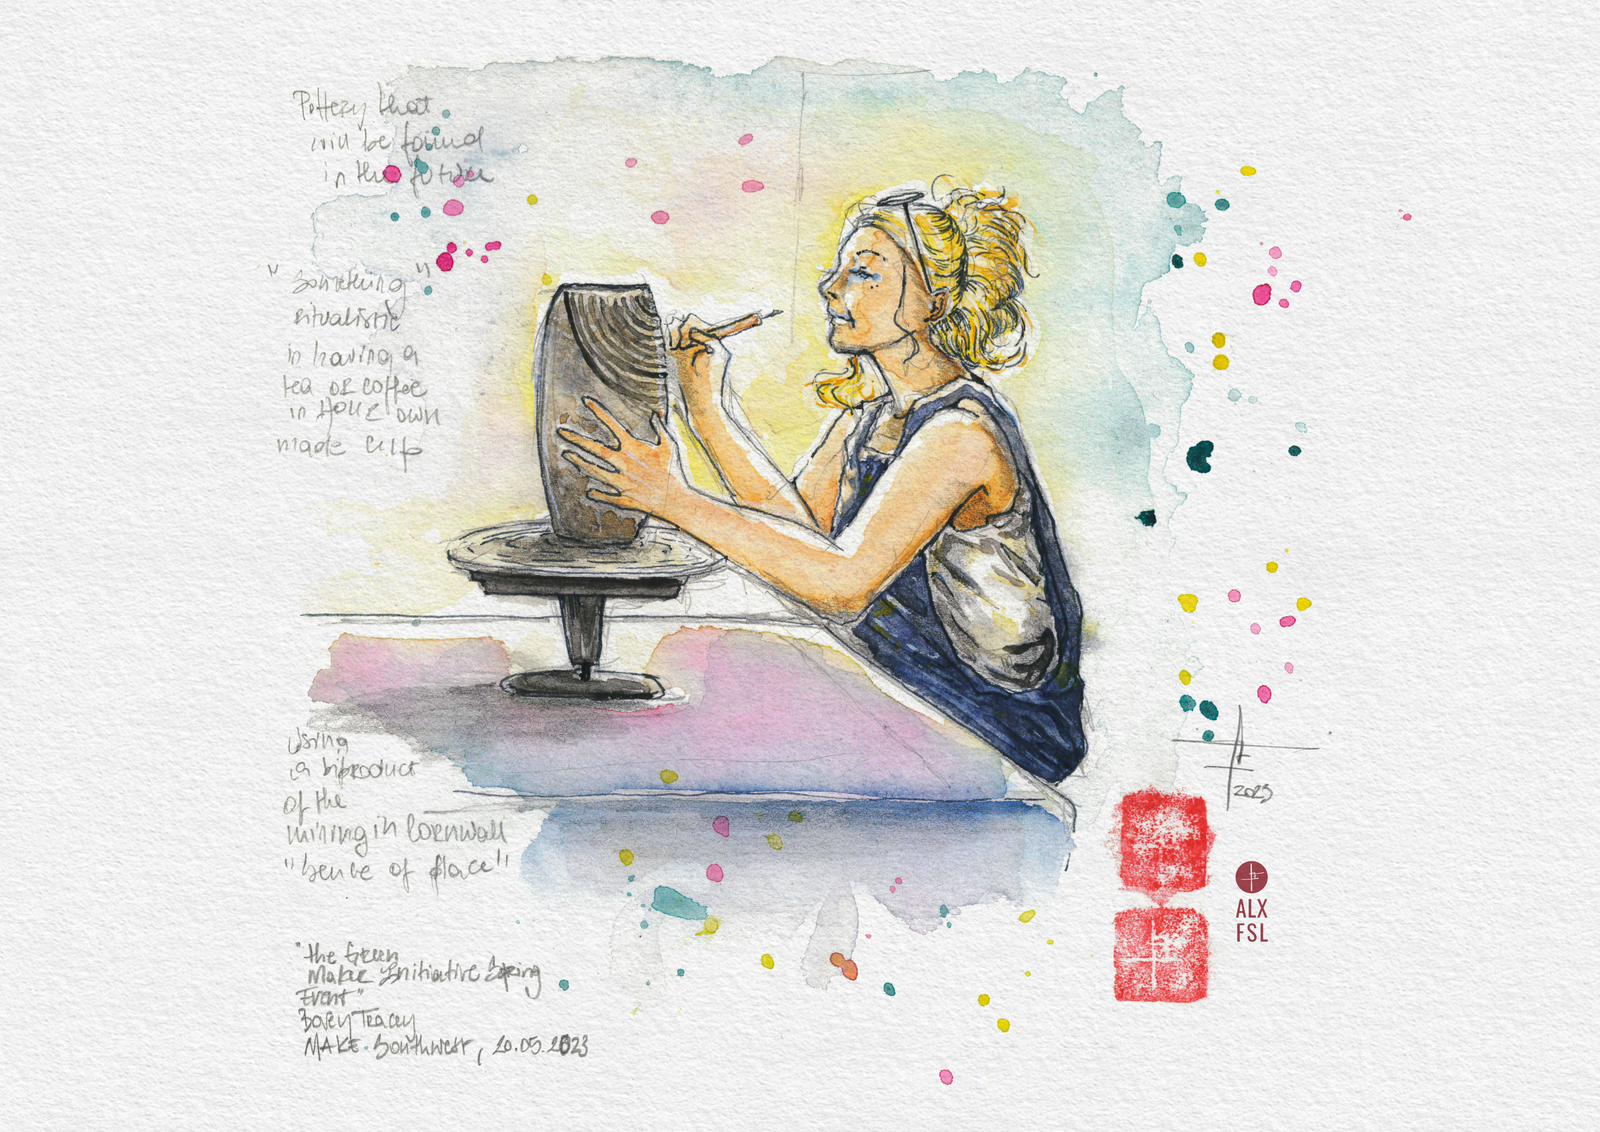 Pottery that
will be found
in the future
"Something"
ritualistic
in having a
tea or coffee
in your own
made cup
Using
a biproduct
of the
mining in Cornwall
"sence of place"
"The Green
Maker Initiative Spring
Event"
Bovey Tracey
MAKE Southwest, 20.05.2023
2023
ALX
FSL